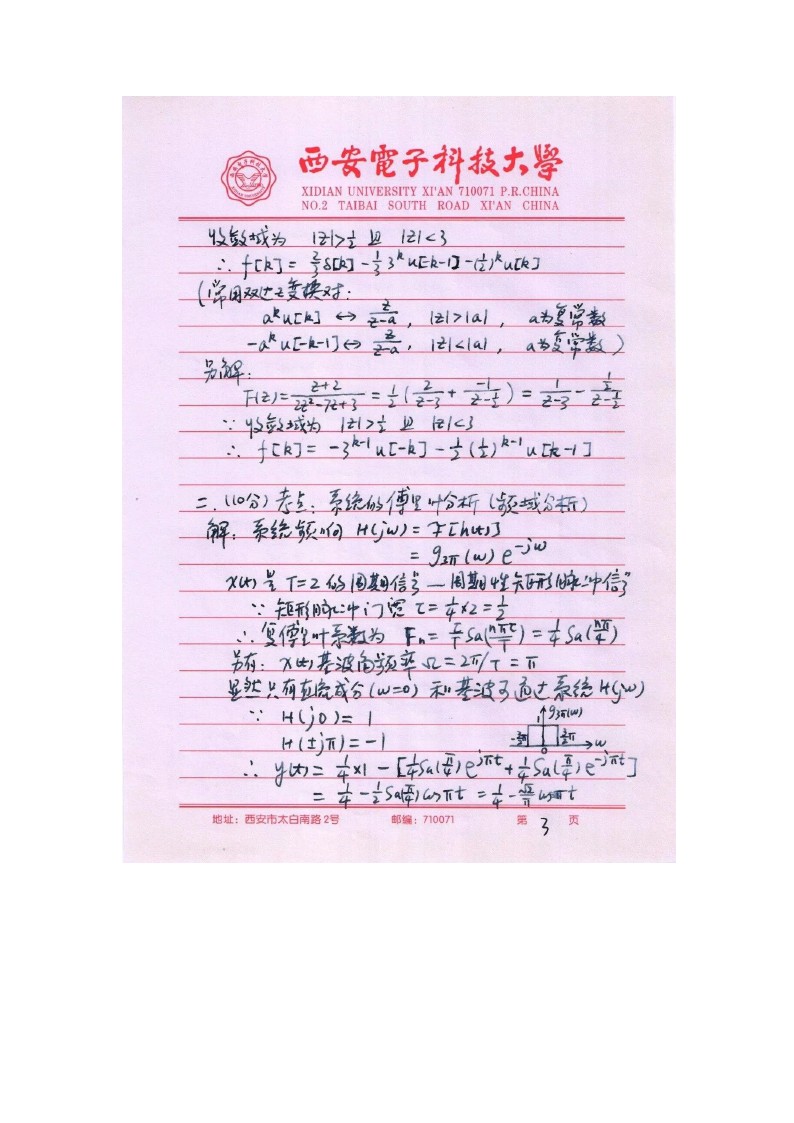 西安電子科技大學
XIDIAN UNIVERSITY XI'AN 710071 P.R.CHINA
NO.2 TAIBAI SOUTH ROAD XI'AN CHINA
收敛域为 |z|>1/2 且 |z|<3
∴ f[k] = 2/3 δ[k] - 1/3 3^k u[-k-1] - (1/2)^k u[k]
(常用双边z变换对:
a^k u[k] ↔ z/(z-a) , |z|>|a| , a为复常数
-a^k u[-k-1] ↔ z/(z-a) , |z|<|a| , a为复常数)
另解:
F(z) = (z+2)/(2z²-7z+3) = 1/2 (2/(z-3) + (-1)/(z-1/2)) = 1/(z-3) - (1/2)/(z-1/2)
∵ 收敛域为 |z|>1/2 且 |z|<3
∴ f[k] = -3^(k-1) u[-k] - 1/2 (1/2)^(k-1) u[k-1]
二.(10分) 考点: 系统的傅里叶分析(频域分析)
解: 系统频响 H(jω) = F[h(t)]
= g3π(ω) e^(-jω)
x(t) 是 T=2 的周期信号 — 周期性矩形脉冲信号
∵ 矩形脉冲门宽 τ = 1/4 × 2 = 1/2
∴ 复傅里叶系数为 Fn = τ/T Sa(nπτ/T) = 1/4 Sa(nπ/4)
另有: x(t)基波角频率 Ω = 2π/T = π
显然只有直流成分(ω=0) 和基波可通过系统 H(jω)
∵ H(j0) = 1
H(±jπ) = -1
g3π(ω)
1
-3/2π 0 3/2π ω
∴ y(t) = 1/4 × 1 - [1/4 Sa(π/4) e^(jπt) + 1/4 Sa(π/4) e^(-jπt)]
= 1/4 - 1/2 Sa(π/4) cosπt = 1/4 - √2/π cosπt
地址: 西安市太白南路2号 邮编: 710071 第 3 页